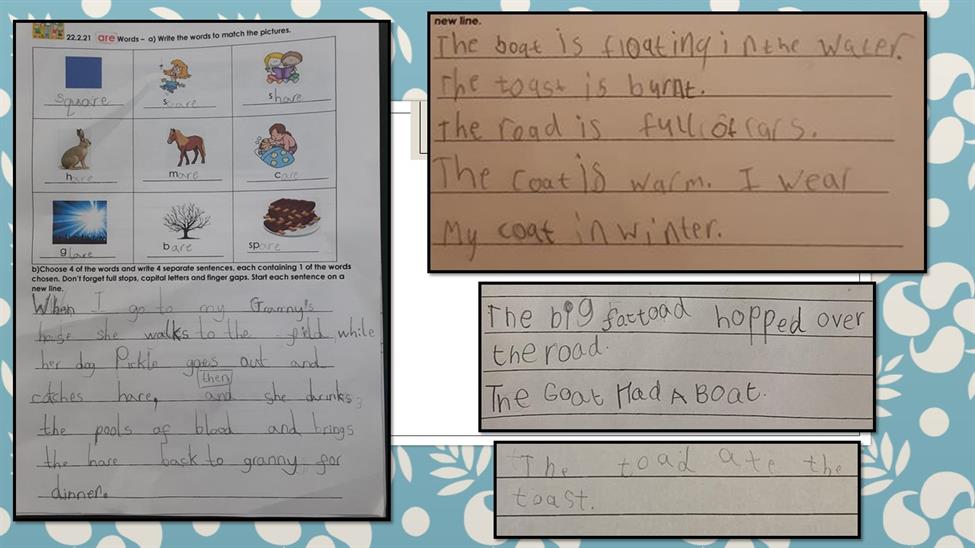 22.2.21 are Words – a) Write the words to match the pictures.
square scare share
hare mare care
glare bare spare
b)Choose 4 of the words and write 4 separate sentences, each containing 1 of the words
chosen. Don't forget full stops, capital letters and finger gaps. Start each sentence on a
new line.
When I go to my Granny's
she walks to the while
her dog Pickle goes out and
then
catches hare, and she drinks
the pools of blood and brings
the hare back to granny for
dinner.
new line.
The boat is floating in the water.
The toast is burnt.
the road is full of cars.
The coat is warm. I wear
My coat in winter.
The big fat toad hopped over
the road.
The Goat Had A Boat.
The toad ate the
toast.